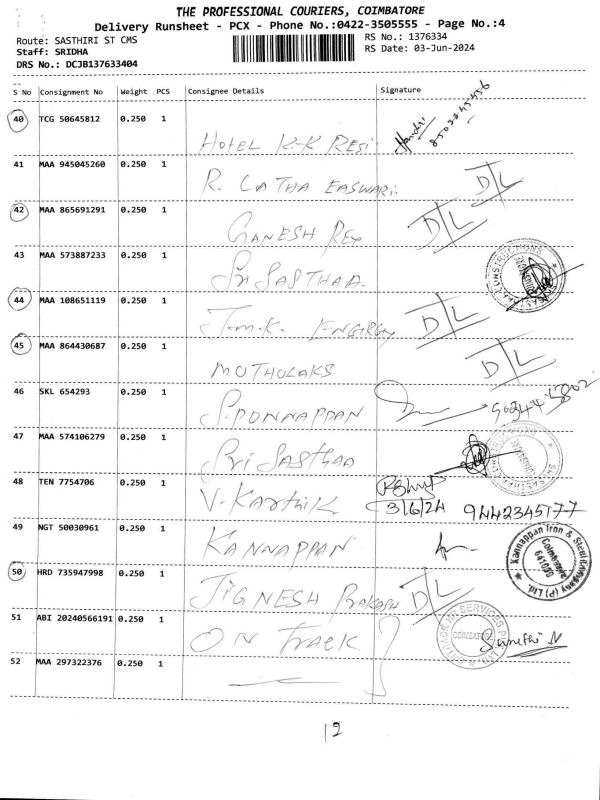 THE PROFESSIONAL COURIERS, COIMBATORE
Delivery Runsheet - PCX - Phone No.:0422-3505555 - Page No.:4
Route: SASTHIRI ST CMS RS No.: 1376334
Staff: SRIDHA RS Date: 03-Jun-2024
DRS No.: DCJB137633404
S No Consignment No Weight PCS Consignee Details Signature
40 TCG 50645812 0.250 1
HOTEL K-K RESI
41 MAA 945045260 0.250 1
R. LATHA EASWARI. D/L
42 MAA 865691291 0.250 1
GANESH REX D/L
43 MAA 573887233 0.250 1
Sri SASTHAA
44 MAA 108651119 0.250 1
J.m.K. ENGRGY D/L
45 MAA 864430687 0.250 1
MUTHOLAKS D/L
46 SKL 654293 0.250 1
S.PONNAPPAN
47 MAA 574106279 0.250 1
Sri Sasthaa
48 TEN 7754706 0.250 1
V. Karthik 3/6/24 9442345177
49 NGT 50030961 0.250 1
KANNAPPAN
Kannappan Iron & Steel Company (P) Ltd.
Coimbatore
50 HRD 735947998 0.250 1
JIGNESH Prakash D/L
51 ABI 20240566191 0.250 1
ON TRACK
COIMBATORE
52 MAA 297322376 0.250 1
12